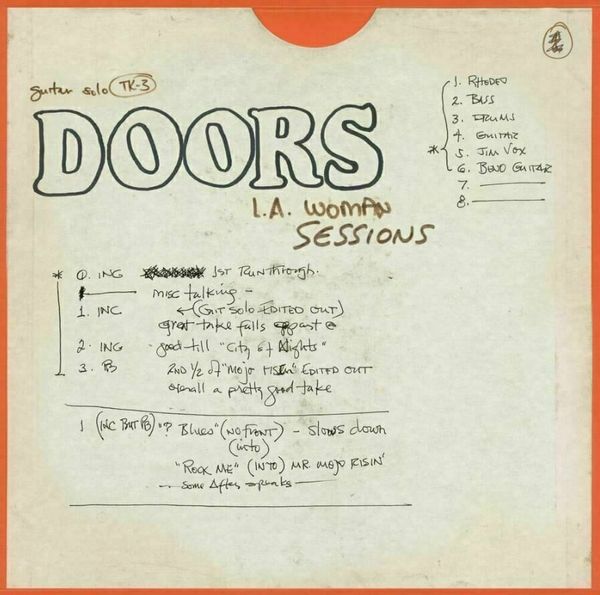 guitar solo TK-3
DOORS
L.A. WOMAN
SESSIONS
1. RHODES
2. BASS
3. DRUMS
4. GUITAR
* 5. JIM VOX
6. BEND GUITAR
7.
8.
* 0. INC 1ST RUNTHROUGH.
misc talking -
1. INC ← (GIT SOLO EDITED OUT)
great take falls apart @
2. INC good till "City of Nights"
3. PB 2ND 1/2 of "MOJO RISIN" EDITED OUT
overall a pretty good take
1 (INC BUT PB) "? BLUES" (NO FRONT) - slows down
(into)
"ROCK ME" (INTO) MR. MOJO RISIN'
some After